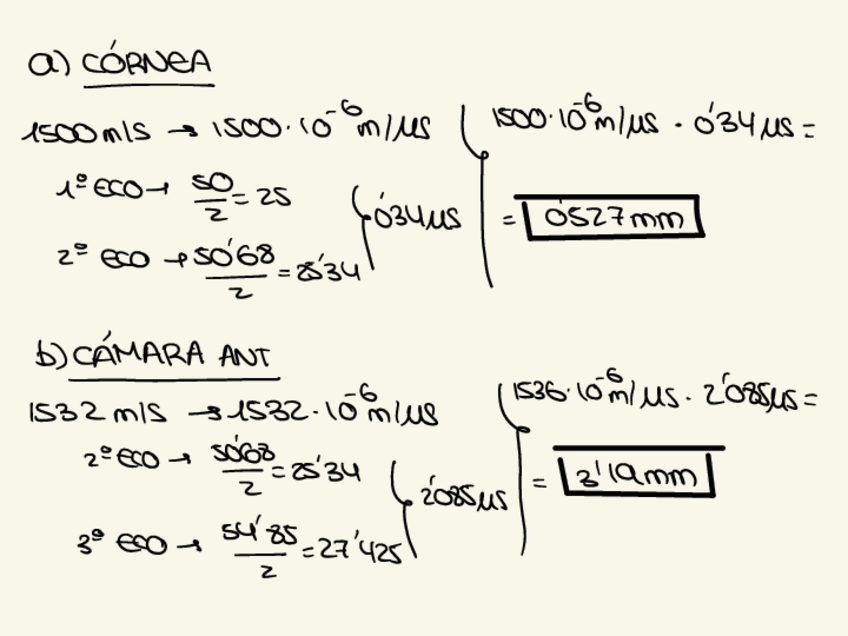 a) CÓRNEA
1500 m/s → 1500·10⁻⁶ m/μs
1º ECO → 50/2 = 25
2º ECO → 50'68/2 = 25'34
0'34 μs
1500·10⁻⁶ m/μs · 0'34 μs =
= 0'527 mm
b) CÁMARA ANT
1532 m/s → 1532·10⁻⁶ m/μs
2º ECO → 50'68/2 = 25'34
3º ECO → 54'85/2 = 27'425
2'085 μs
1536·10⁻⁶ m/μs · 2'085 μs =
= 3'19 mm